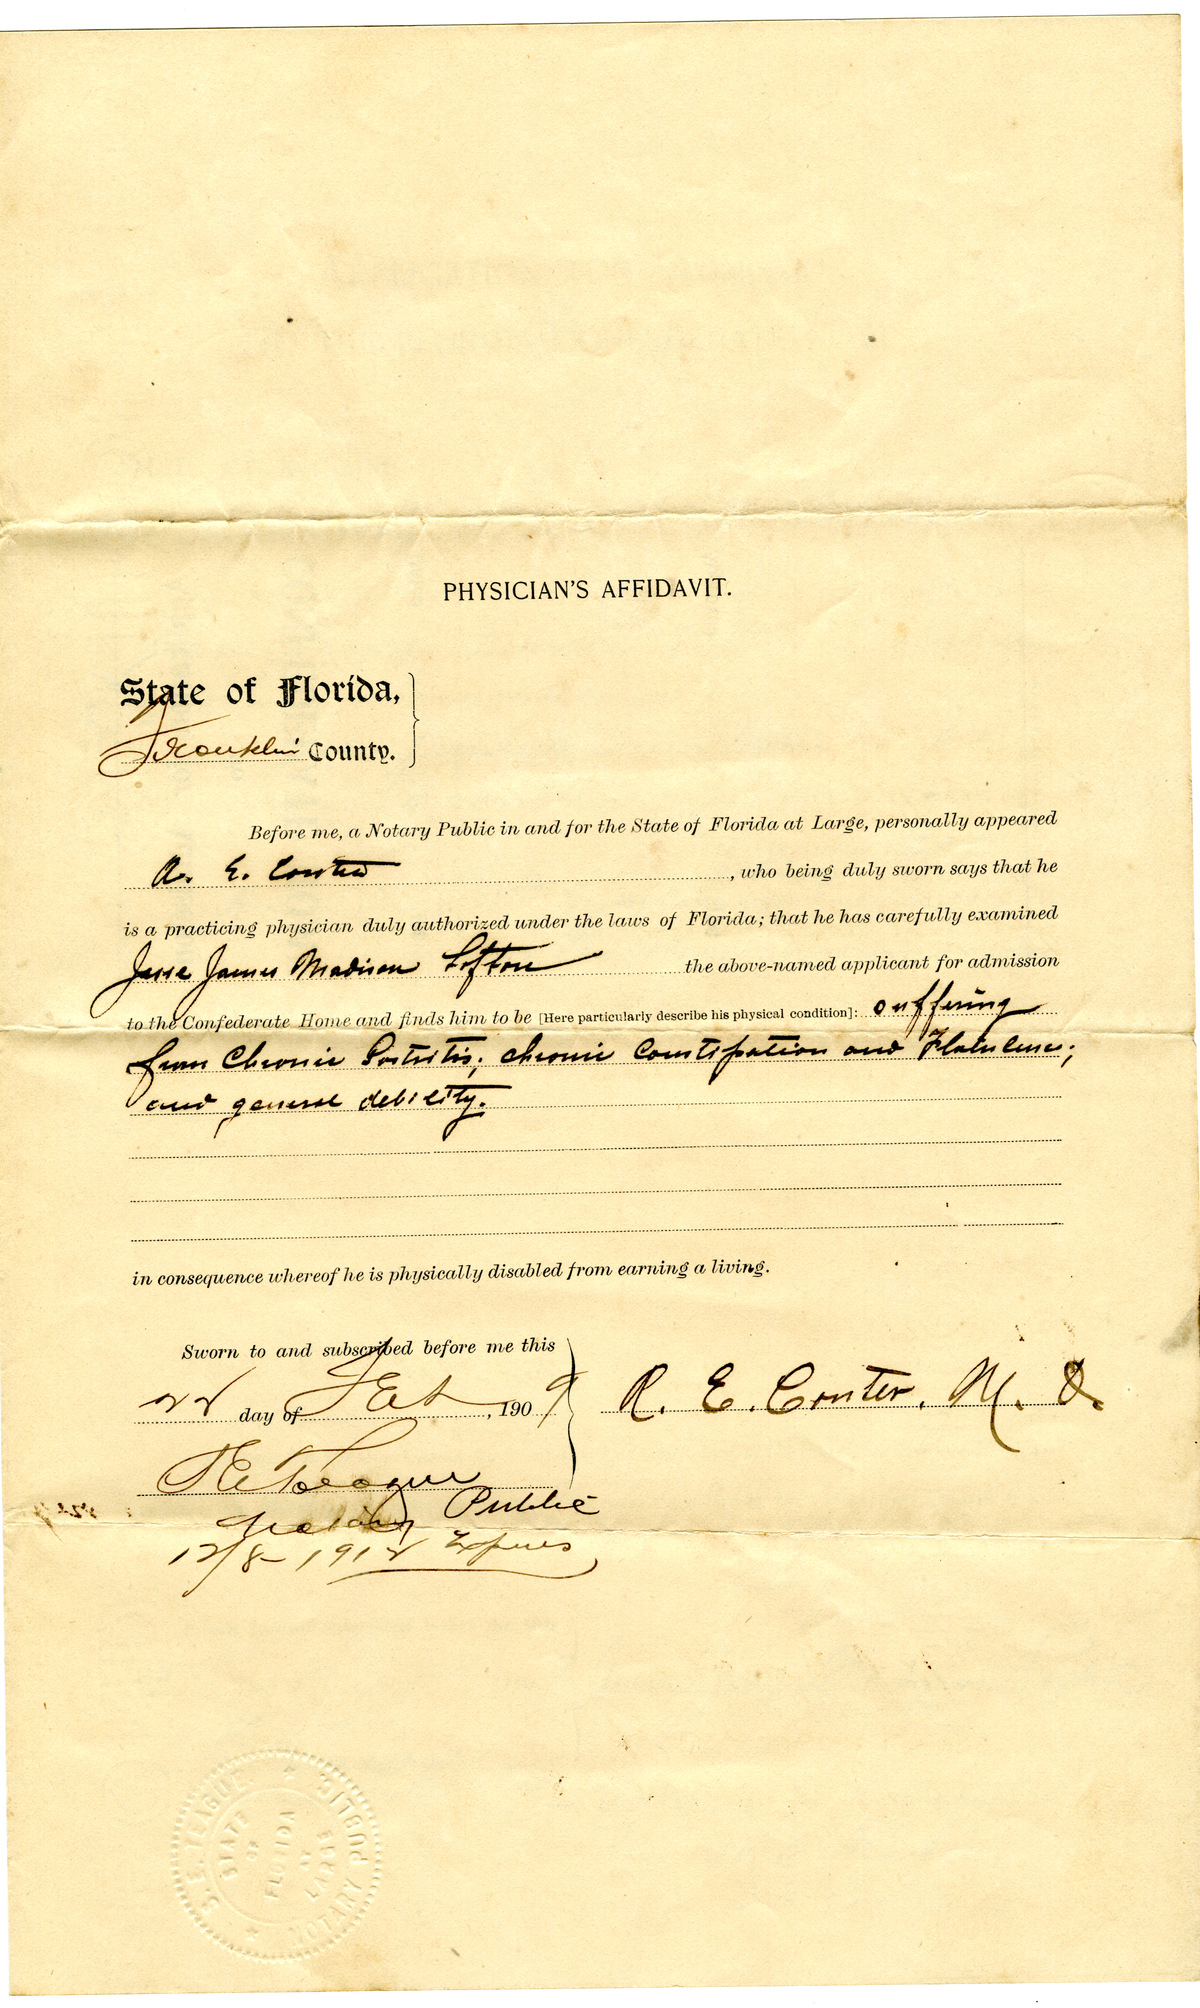 PHYSICIAN'S AFFIDAVIT.
State of Florida,
Franklin County.
Before me, a Notary Public in and for the State of Florida at Large, personally appeared
R. E. Conter, who being duly sworn says that he
is a practicing physician duly authorized under the laws of Florida; that he has carefully examined
Jesse James Madison Lofton the above-named applicant for admission
to the Confederate Home and finds him to be [Here particularly describe his physical condition]: suffering
from Chronic chronic Constipation and Flatulence;
and general debility.
in consequence whereof he is physically disabled from earning a living.
Sworn to and subscribed before me this
22 day of Feb, 1909 R. E. Conter, M. D.
S E Teague
Notary Public
12/8-1912 Expires
S. E. TEAGUE NOTARY PUBLIC
STATE OF FLORIDA AT LARGE